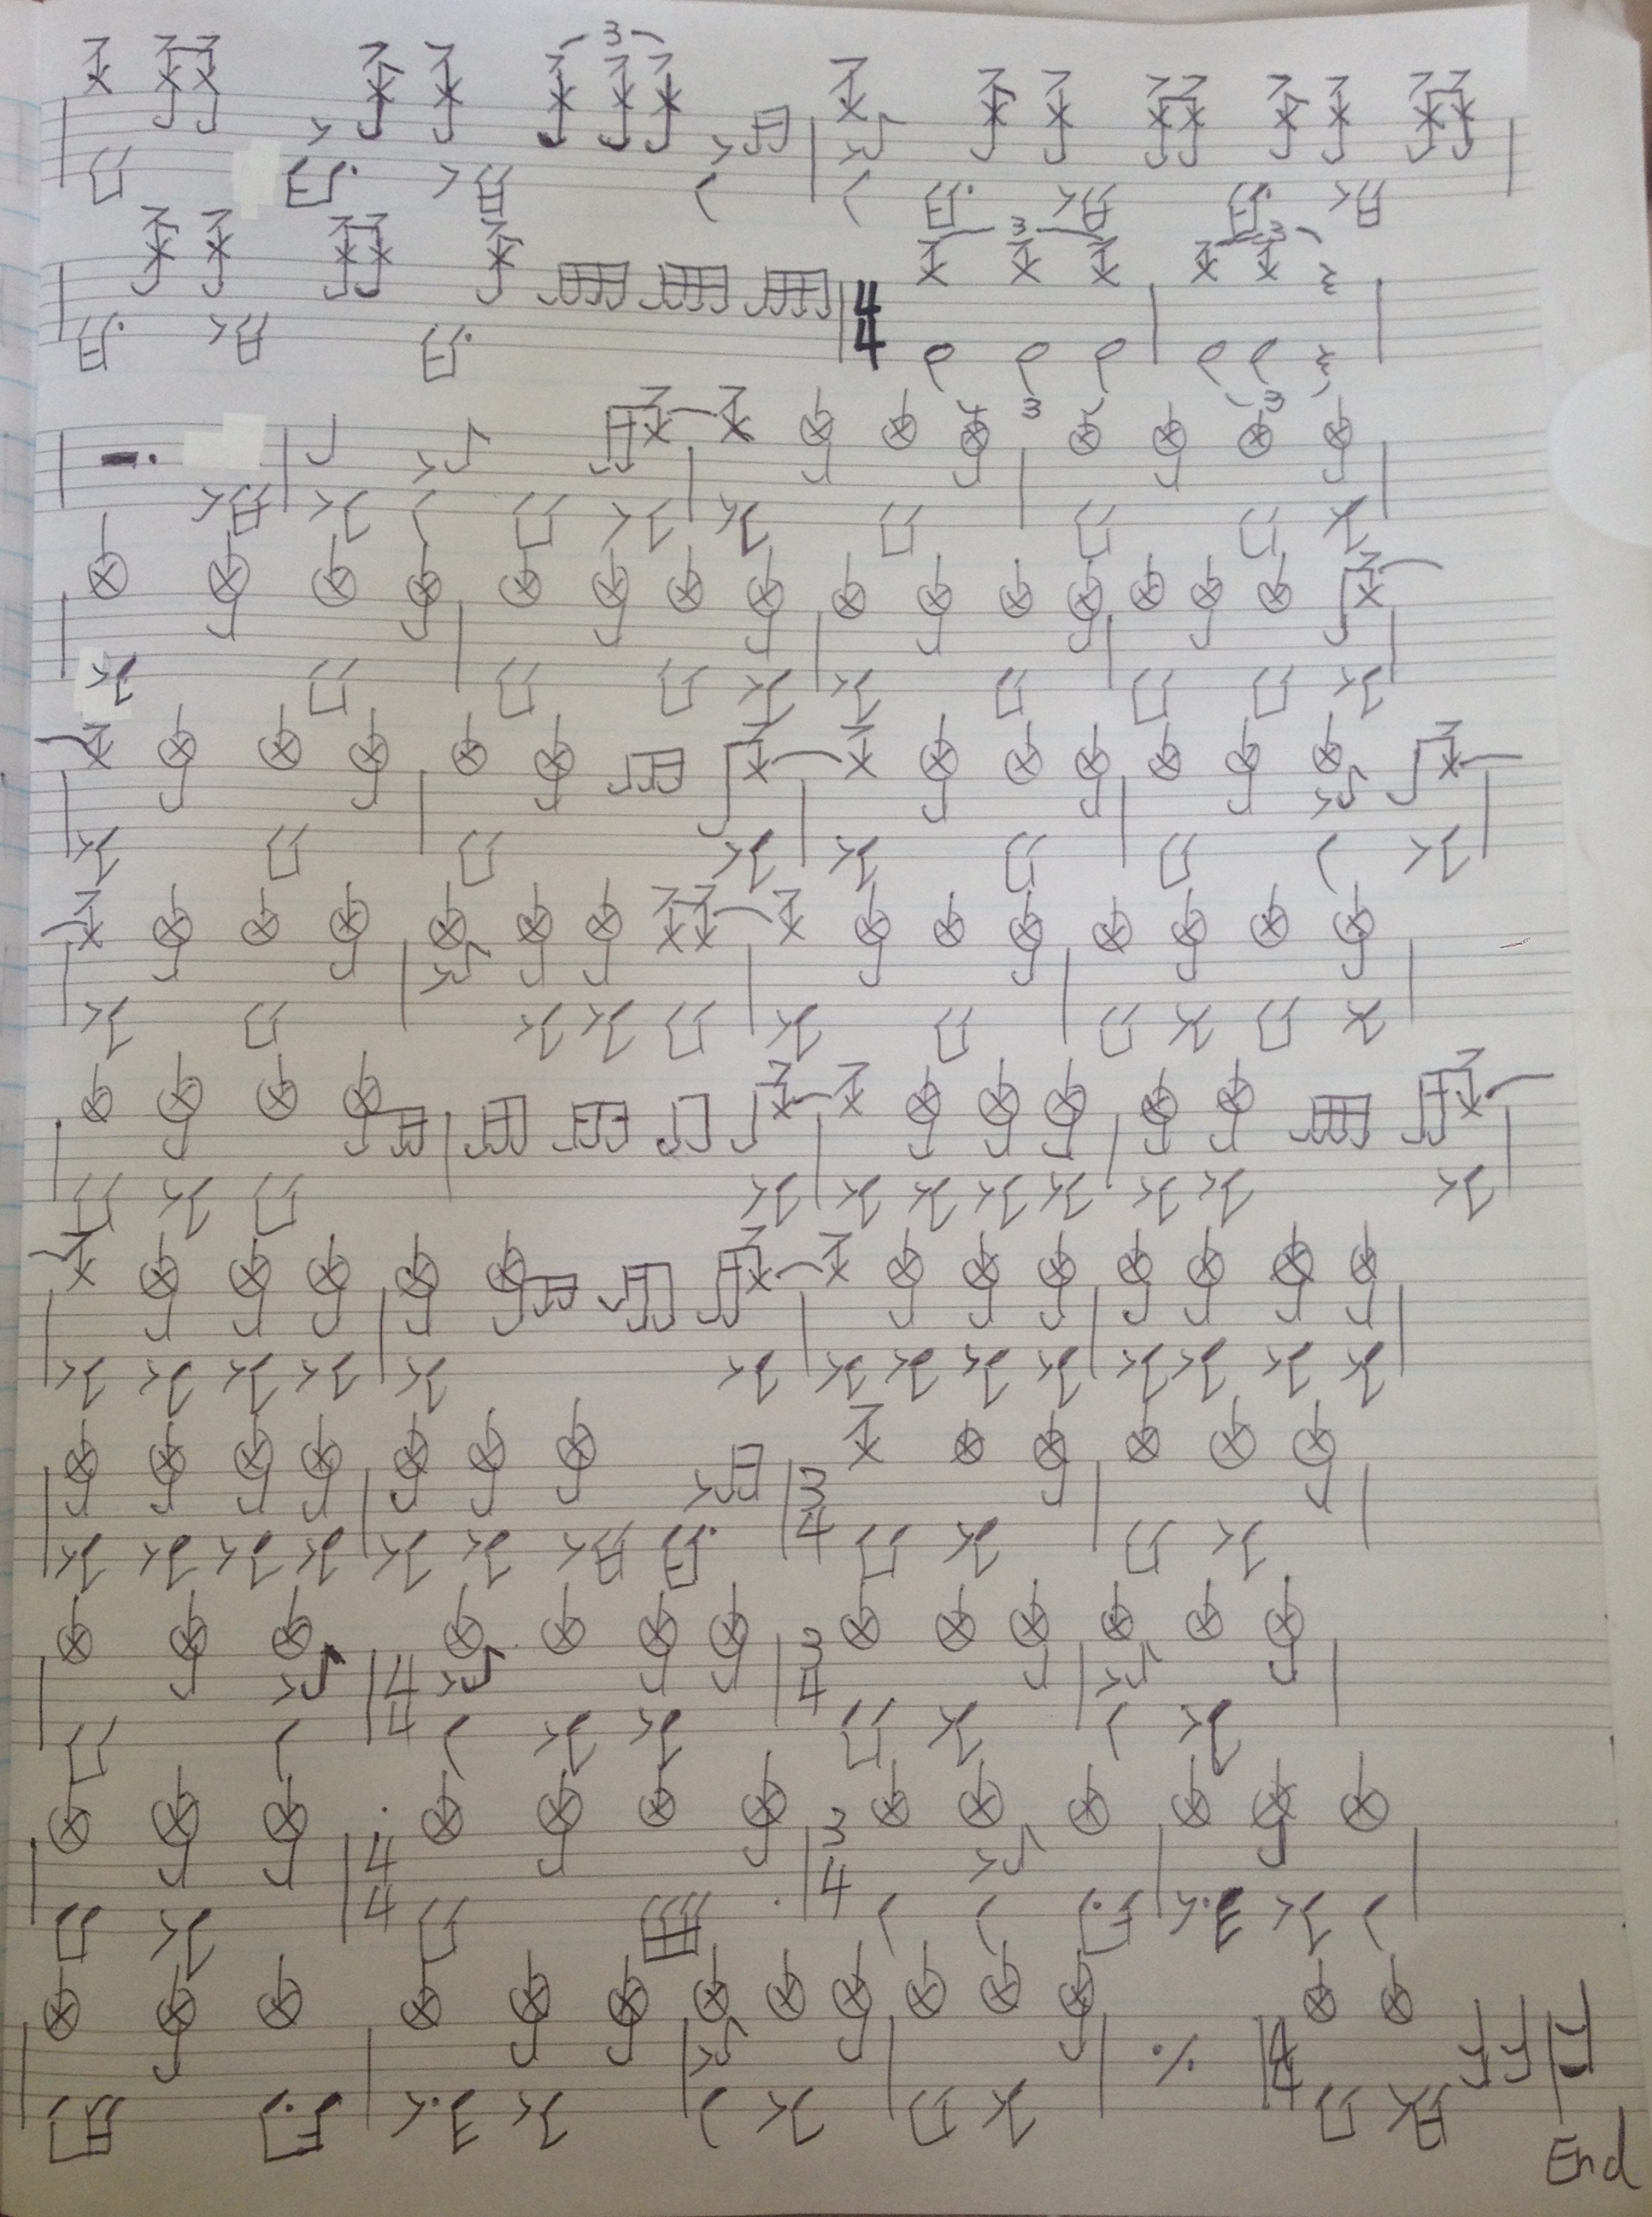 3
3 3
4
4
3 3
3
4
4
4
3
4
4
4
3
4
4
4
End